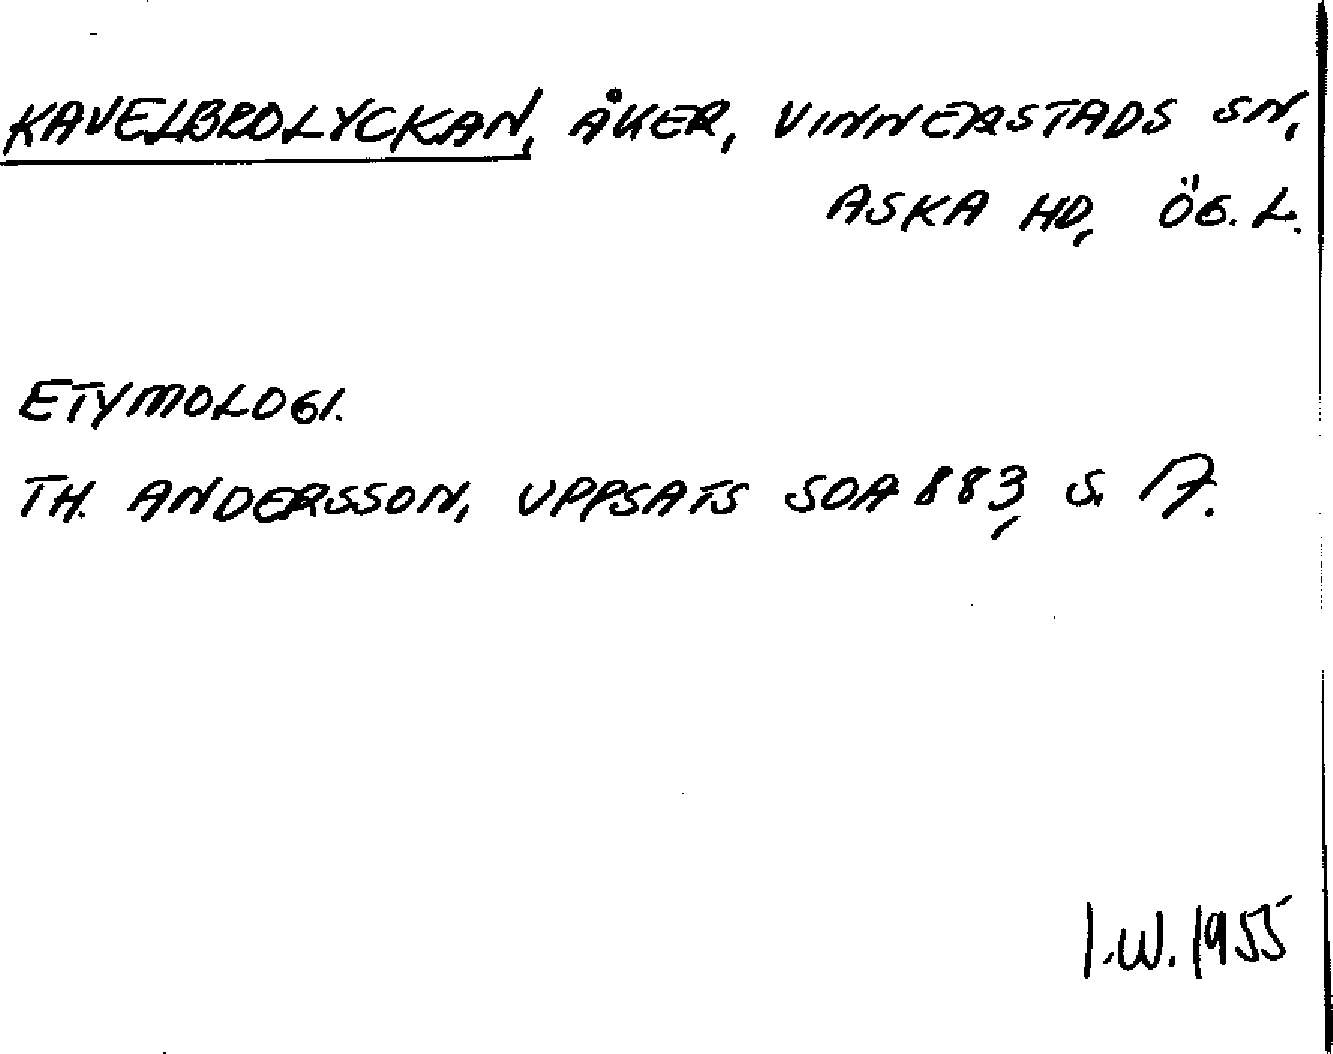 KAVELBROLYCKAN, ÅKER, VINNERSTADS SN,
ASKA HD, ÖG. L.
ETYMOLOGI.
TH. ANDERSSON, UPPSATS SOA 883, S. 17.
I.W. 1955